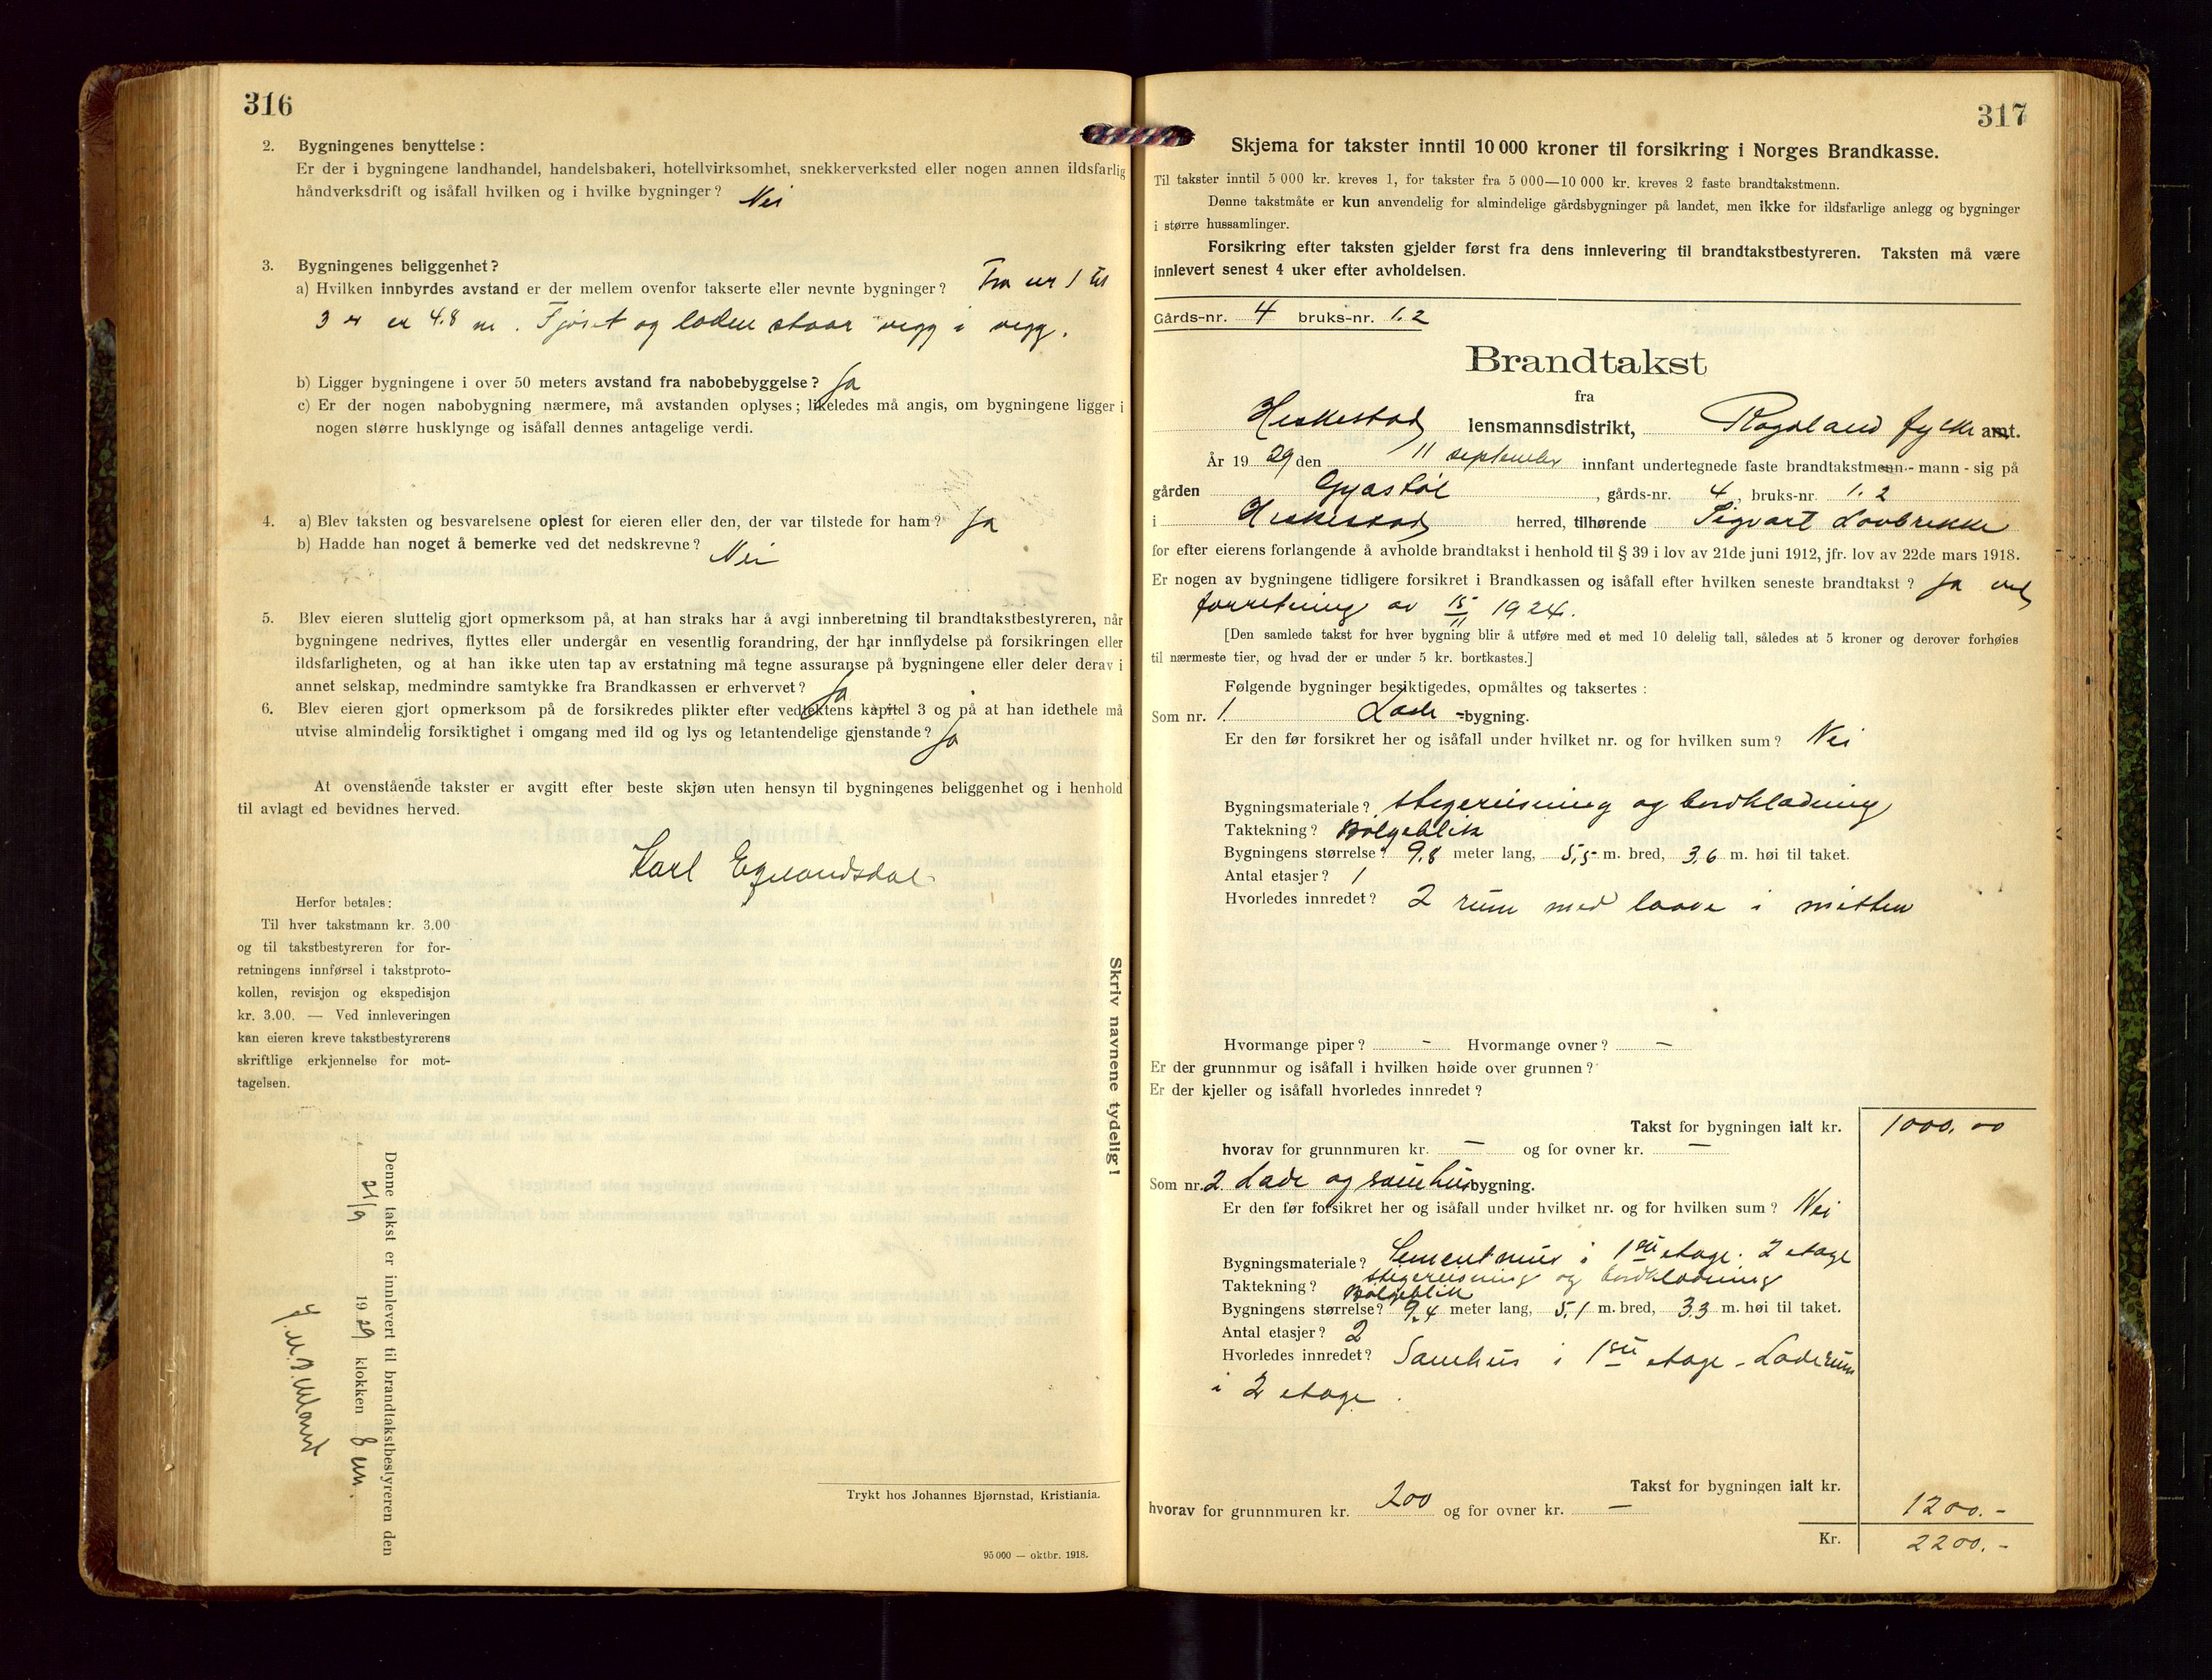 316
2. Bygningenes benyttelse:
Er der i bygningene landhandel, handelsbakeri, hotellvirksomhet, snekkerverksted eller nogen annen ildsfarlig
håndverksdrift og isåfall hvilken og i hvilke bygninger? Nei
3. Bygningenes beliggenhet?
a) Hvilken innbyrdes avstand er der mellem ovenfor takserte eller nevnte bygninger? Fra nr 1 til
3 er 4.8 m. Fjøset og laden staar vegg i vegg.
b) Ligger bygningene i over 50 meters avstand fra nabobebyggelse? Ja
c) Er der nogen nabobygning nærmere, må avstanden oplyses; likeledes må angis, om bygningene ligger i
nogen større husklynge og isåfall dennes antagelige verdi.
4. a) Blev taksten og besvarelsene oplest for eieren eller den, der var tilstede for ham? Ja
b) Hadde han noget å bemerke ved det nedskrevne? Nei
5. Blev eieren sluttelig gjort opmerksom på, at han straks har å avgi innberetning til brandtakstbestyreren, når
bygningene nedrives, flyttes eller undergår en vesentlig forandring, der har innflydelse på forsikringen eller
ildsfarligheten, og at han ikke uten tap av erstatning må tegne assuranse på bygningene eller deler derav i
annet selskap, medmindre samtykke fra Brandkassen er erhvervet? Ja
6. Blev eieren gjort opmerksom på de forsikredes plikter efter vedtektens kapitel 3 og på at han idethele må
utvise almindelig forsiktighet i omgang med ild og lys og letantendelige gjenstande? Ja
At ovenstående takster er avgitt efter beste skjøn uten hensyn til bygningenes beliggenhet og i henhold
til avlagt ed bevidnes herved.
Karl
Herfor betales:
Til hver takstmann kr. 3.00
og til takstbestyreren for for-
retningens innførsel i takstproto-
kollen, revisjon og ekspedisjon
kr. 3.00. — Ved innleveringen
kan eieren kreve takstbestyrerens
skriftlige erkjennelse for mot-
tagelsen.
Skriv navnene tydelig!
Denne takst er innlevert til brandtakstbestyreren den
21/9 1929 klokken 8 em.
Trykt hos Johannes Bjørnstad, Kristiania.
95 000 — oktbr. 1918.
317
Skjema for takster inntil 10 000 kroner til forsikring i Norges Brandkasse.
Til takster inntil 5 000 kr. kreves 1, for takster fra 5 000—10 000 kr. kreves 2 faste brandtakstmenn.
Denne takstmåte er kun anvendelig for almindelige gårdsbygninger på landet, men ikke for ildsfarlige anlegg og bygninger
i større hussamlinger.
Forsikring efter taksten gjelder først fra dens innlevering til brandtakstbestyreren. Taksten må være
innlevert senest 4 uker efter avholdelsen.
Gårds-nr. 4 bruks-nr. 1.2
Brandtakst
fra
Heskestad lensmannsdistrikt, Rogaland fylke amt.
År 1929 den 11 september innfant undertegnede faste brandtakstmenn - mann - sig på
gården Gyastøl, gårds-nr. 4, bruks-nr. 1.2
i Heskestad herred, tilhørende Sigvart Lovbrekke
for efter eierens forlangende å avholde brandtakst i henhold til § 39 i lov av 21de juni 1912, jfr. lov av 22de mars 1918.
Er nogen av bygningene tidligere forsikret i Brandkassen og isåfall efter hvilken seneste brandtakst? Ja ved
forretning av 15/11 1924.
[Den samlede takst for hver bygning blir å utføre med et med 10 delelig tall, således at 5 kroner og derover forhøies
til nærmeste tier, og hvad der er under 5 kr. bortkastes.]
Følgende bygninger besiktigedes, opmåltes og taksertes:
Som nr. 1. Lade -bygning.
Er den før forsikret her og isåfall under hvilket nr. og for hvilken sum? Nei
Bygningsmateriale? stegereisning og bordklædning
Taktekning? Bølgeblik
Bygningens størrelse? 9.8 meter lang, 5,5 m. bred, 3.6 m. høi til taket.
Antal etasjer? 1
Hvorledes innredet? 2 rum med laave i mitten
Hvormange piper? - Hvormange ovner? -
Er der grunnmur og isåfall i hvilken høide over grunnen?
Er der kjeller og isåfall hvorledes innredet?
Takst for bygningen ialt kr. 1000.00
hvorav for grunnmuren kr. — og for ovner kr. —
Som nr. 2. Lade og sauehus bygning.
Er den før forsikret her og isåfall under hvilket nr. og for hvilken sum? Nei
Bygningsmateriale? Sementmur i 1ste etage. 2 etage
stegereisning og bordklædning
Taktekning? Bølgeblik
Bygningens størrelse? 9.4 meter lang, 5,1 m. bred, 3.3 m. høi til taket.
Antal etasjer? 2
Hvorledes innredet? Sauehus i 1ste etage - Laderum
i 2 etage.
Takst for bygningen ialt kr.
hvorav for grunnmuren kr. 200 og for ovner kr. — 1200.-
Kr. 2200.-